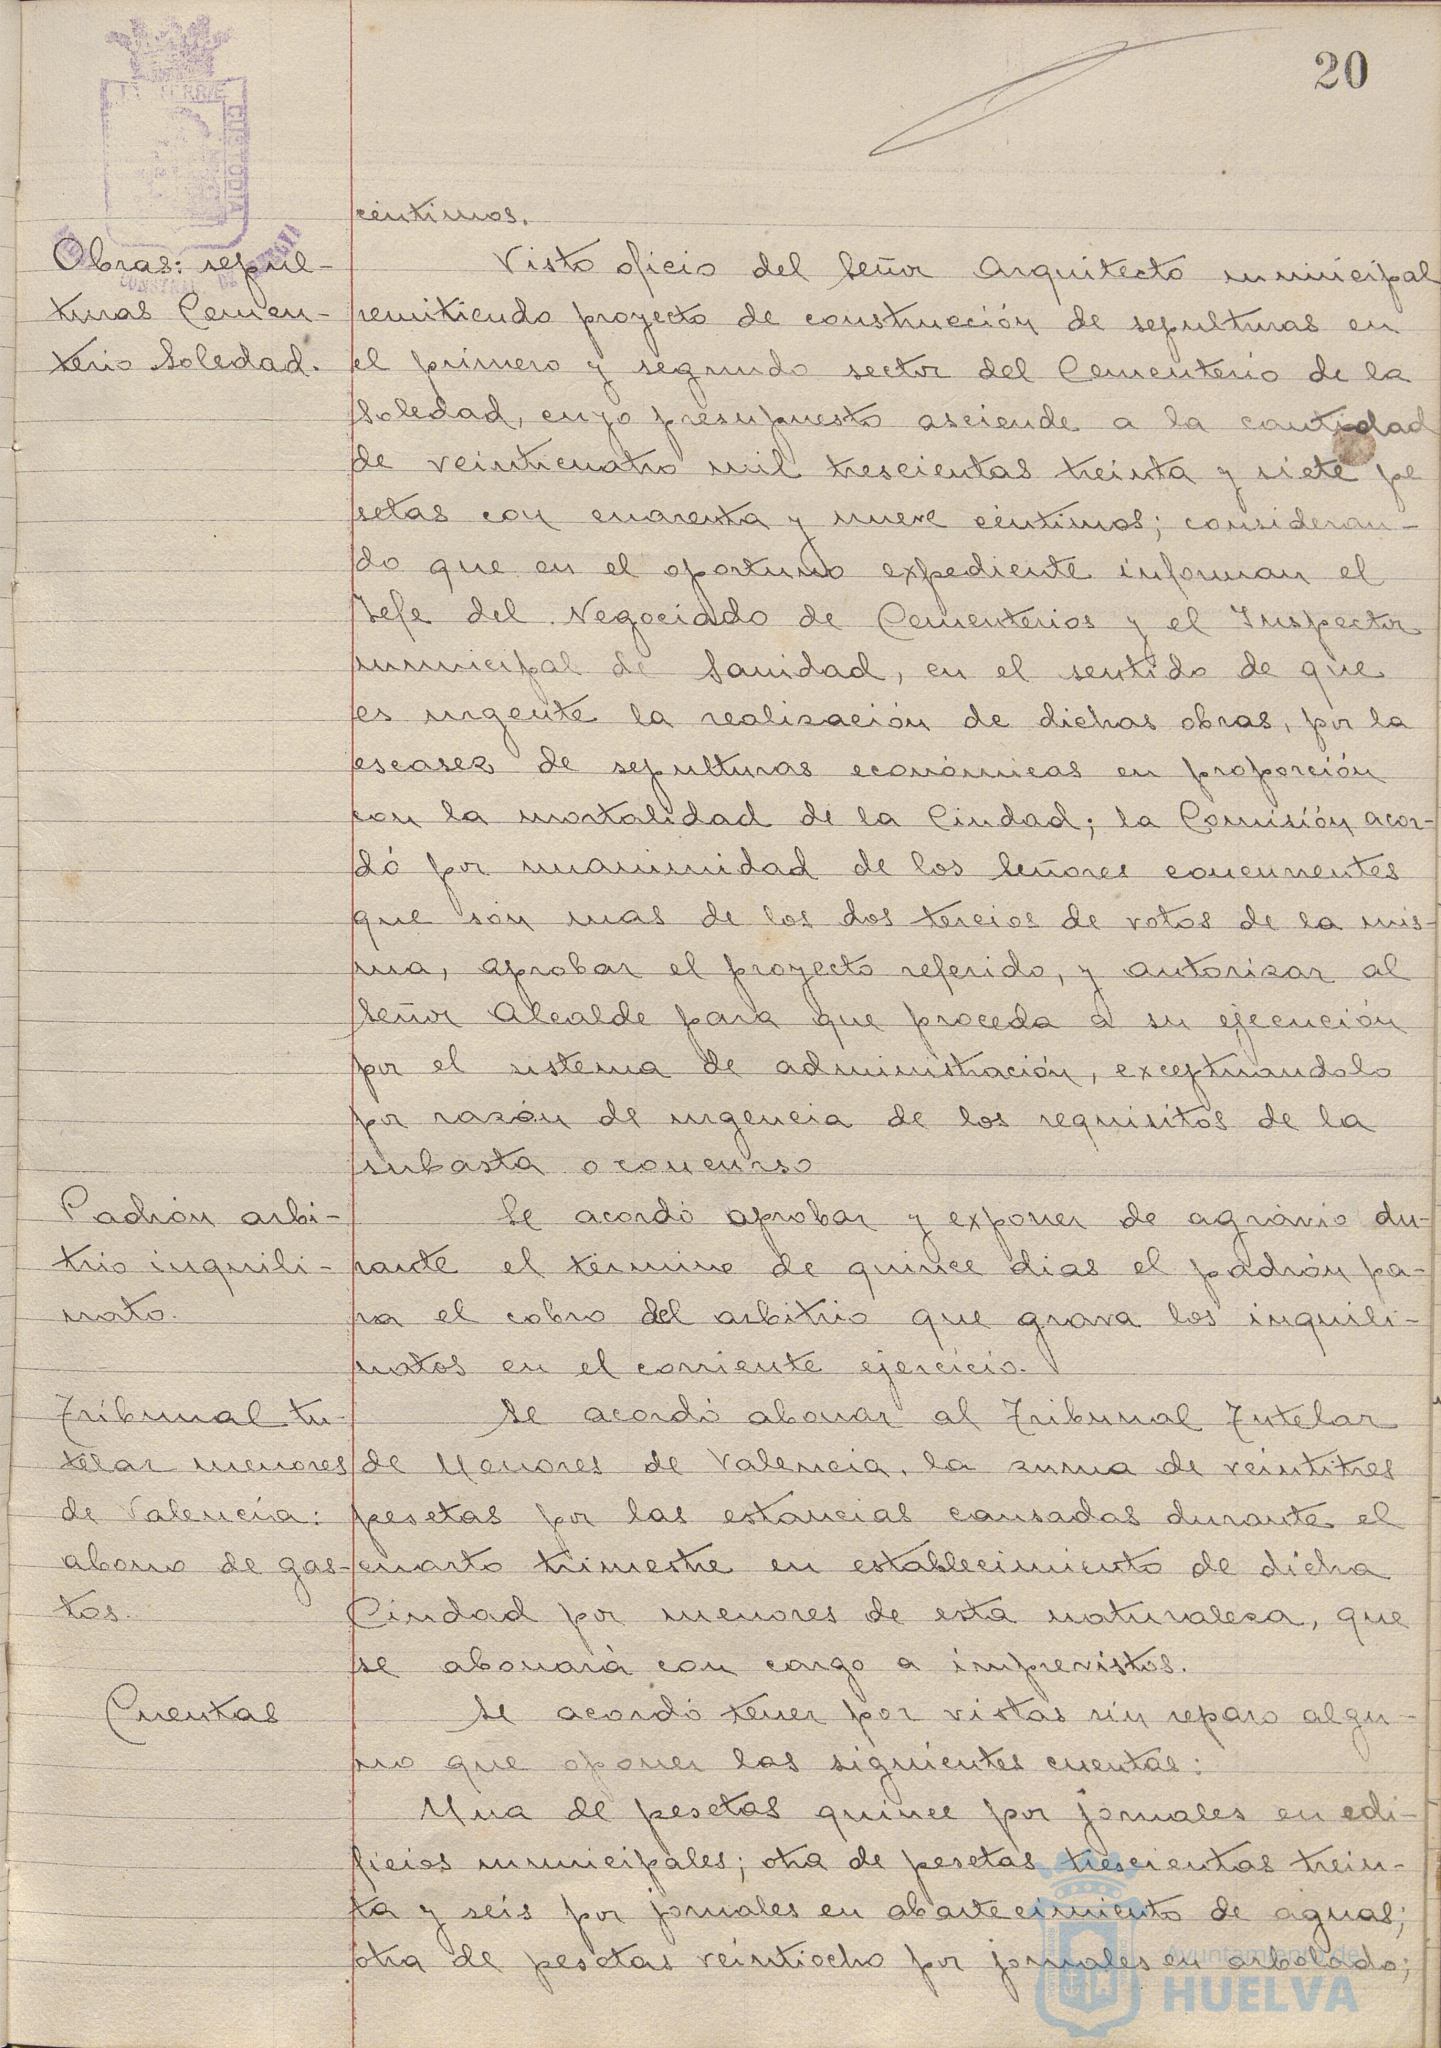 20
céntimos.
Obras: sepul-
turas Cemen-
terio Soledad.
Visto oficio del Señor Arquitecto municipal
remitiendo proyecto de construcción de sepulturas en
el primero y segundo sector del Cementerio de la
Soledad, cuyo presupuesto asciende a la cantidad
de veinticuatro mil trescientas treinta y siete pe
setas con cuarenta y nueve céntimos; consideran-
do que en el oportuno expediente informan el
Jefe del Negociado de Cementerios y el Inspector
municipal de Sanidad, en el sentido de que
es urgente la realización de dichas obras, por la
escasez de sepulturas económicas en proporción
con la mortalidad de la Ciudad; la Comisión acor-
dó por unanimidad de los Señores concurrentes
que son mas de los dos tercios de votos de la mis-
ma, aprobar el proyecto referido, y autorizar al
Señor Alcalde para que proceda a su ejecución
por el sistema de administración, exceptuandolo
por razón de urgencia de los requisitos de la
subasta o concurso
Padrón arbi-
trio inquili-
nato.
Se acordó aprobar y exponer de agravio du-
rante el término de quince dias el padrón pa-
ra el cobro del arbitrio que grava los inquili-
natos en el corriente ejercicio.
Tribunal tu-
telar menores
de Valencia:
abono de gas-
tos.
Se acordó abonar al Tribunal Tutelar
de Menores de Valencia, la suma de veintitres
pesetas por las estancias causadas durante el
cuarto trimestre en establecimiento de dicha
Ciudad por menores de esta naturaleza, que
se abonará con cargo a imprevistos.
Cuentas
Se acordó tener por vistas sin reparo algu-
no que oponer las siguientes cuentas:
Una de pesetas quince por jornales en edi-
ficios municipales; otra de pesetas trescientas trein-
ta y seis por jornales en abastecimiento de aguas;
otra de pesetas veintiocho por jornales en arbolado;
Ayuntamiento de
HUELVA